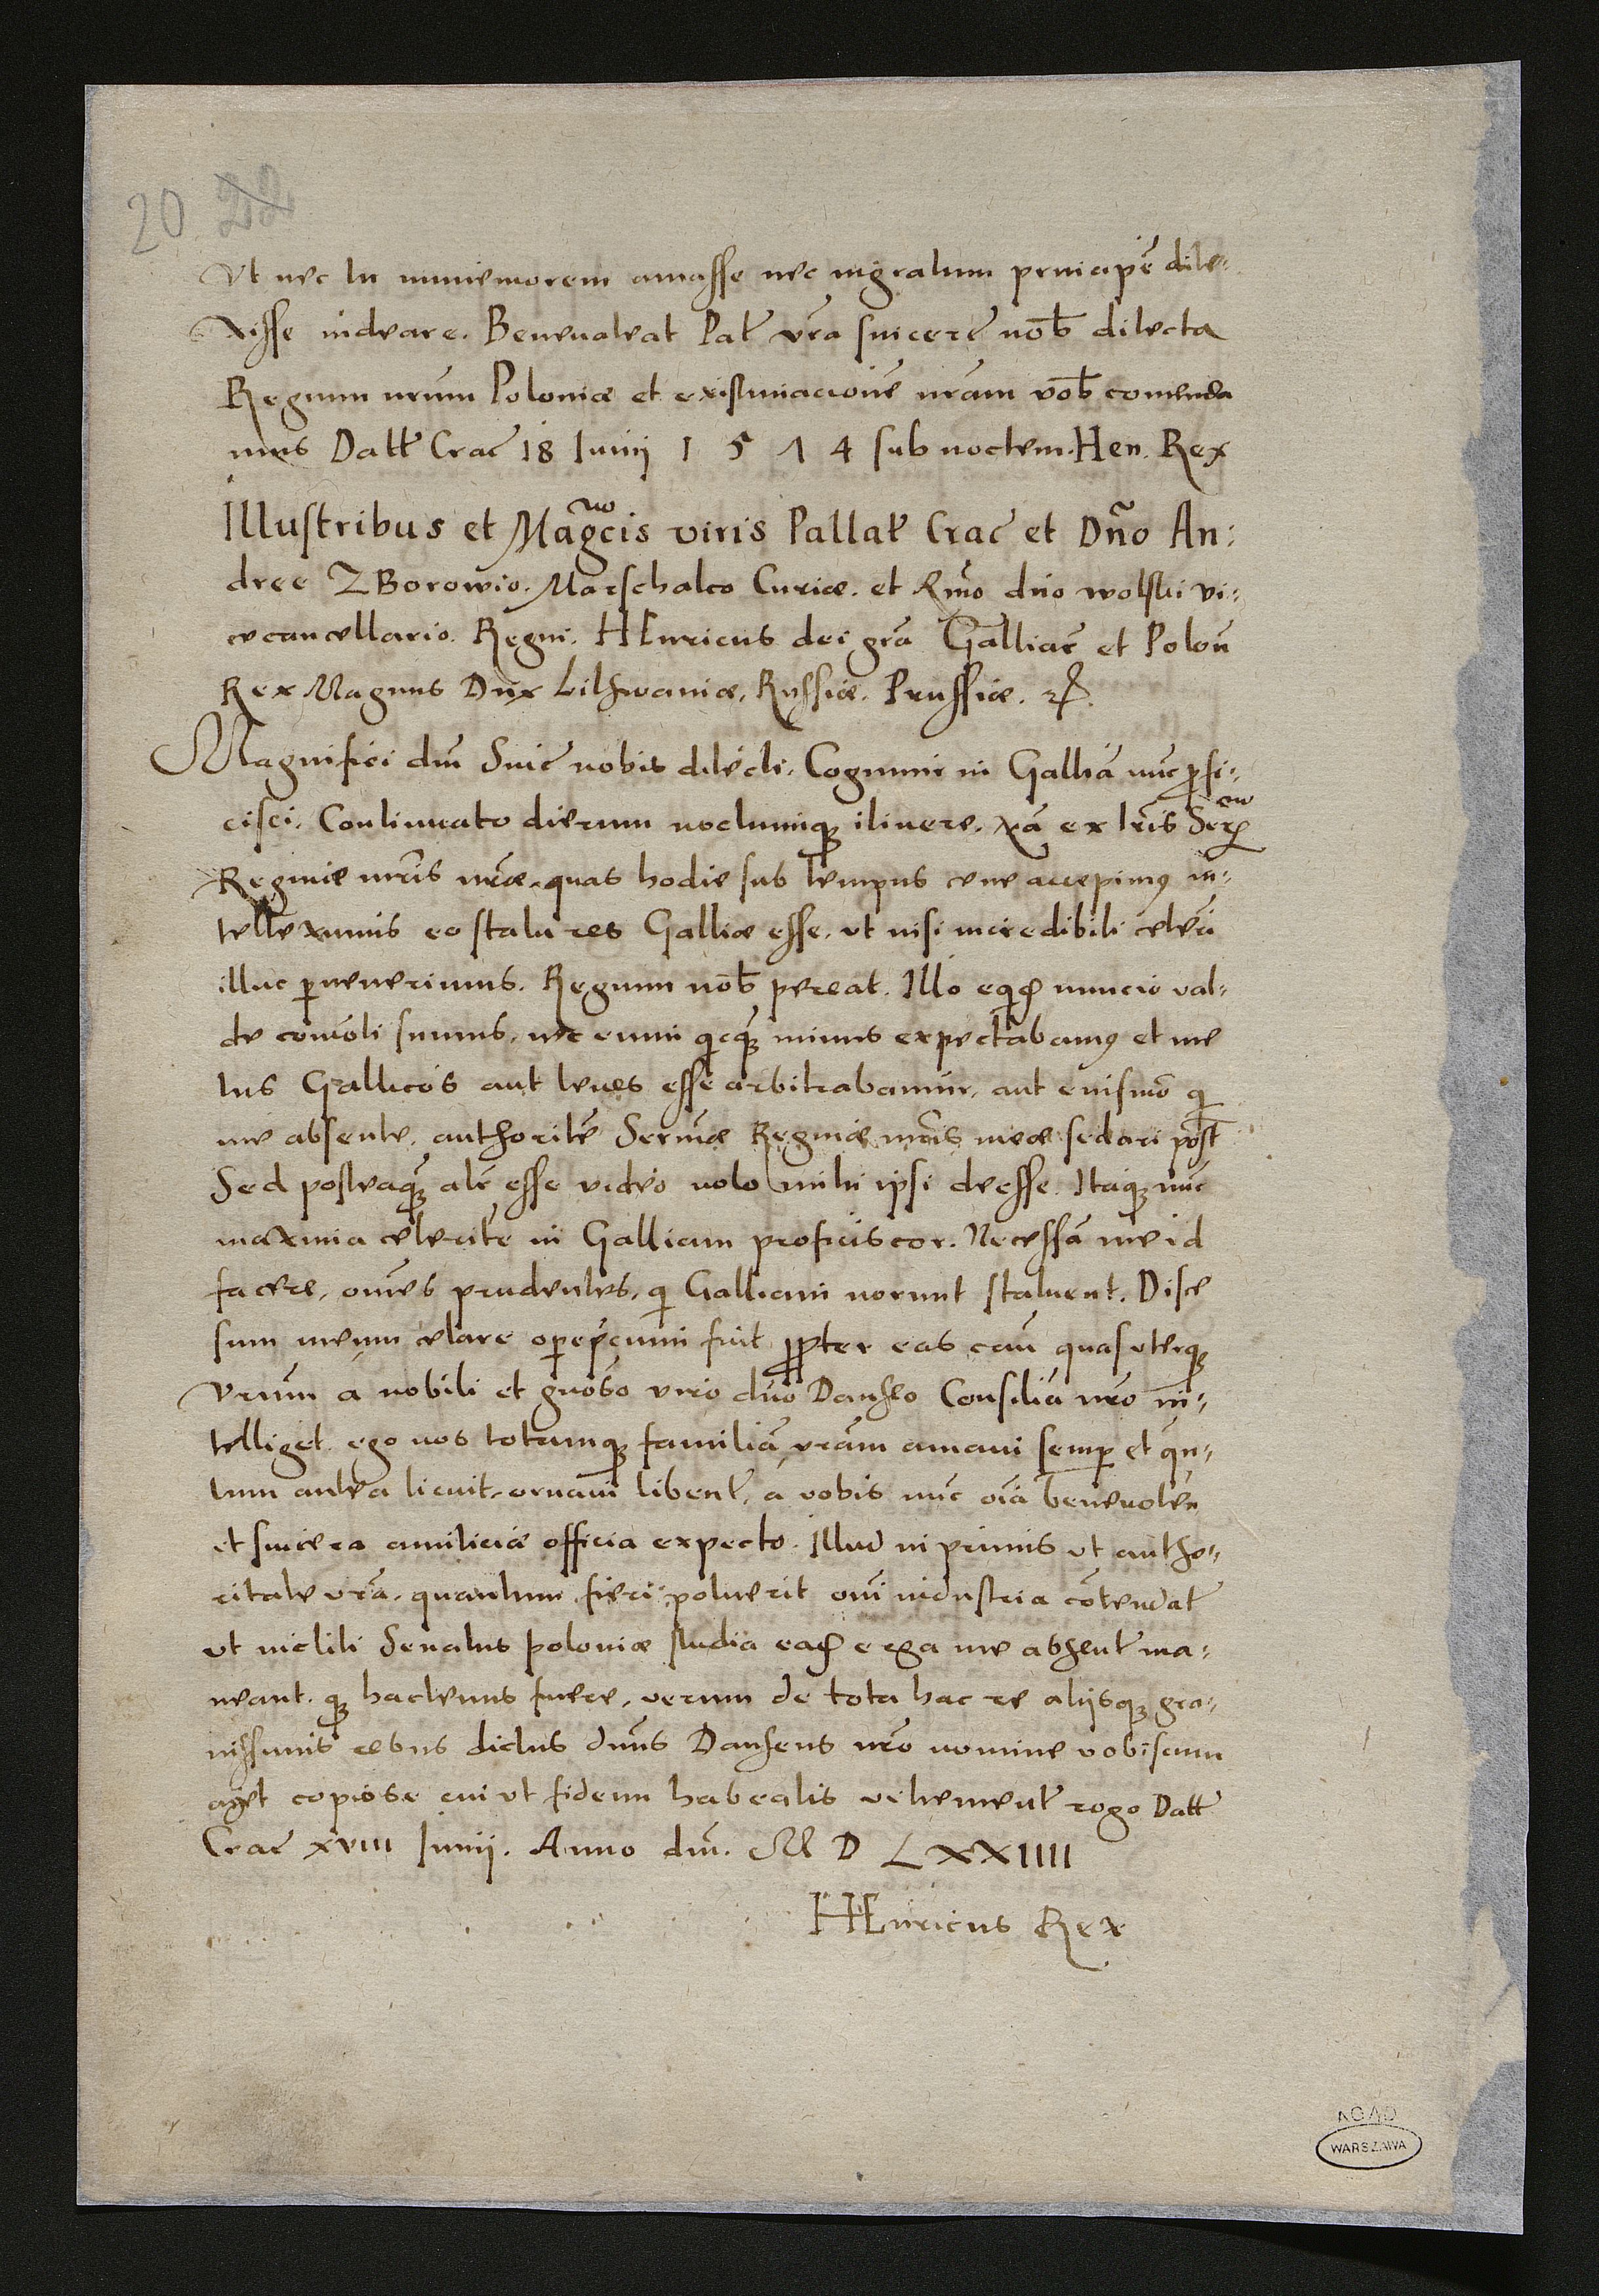 20 22
Vt nec in immemorem amasse nec ingratum principē dile-
xisse videare. Beneualeat Pat vra sincere nob dilecta
Regnum nrum Poloniæ et existimacionē nram vob comenda
mus Datt Crac 18 Iunij 1574 sub noctem. Hen. Rex
Illustribus et Magcis viris Pallat Crac et Dño An-
dree ZBorowio. Marschalco Curiæ. et Rmo dno wolski vi-
cecancellario. Regni. HEnricus dei gra Galliar et Polon
Rex Magnus Dux Lithwaniæ, Russiæ. Prussiæ. etc
Magnifici dni Sinc nobis dilecti. Cogimur in Galliā nūc profi-
cisci. Continuato dierum noctiumq itinere. Nā ex lris Ser
Reginæ mris nræ. quas hodie sub tempus cene accepimus in-
telleximus eo statu res Galliæ esse. vt nisi incredibili celeri
illuc peruenerimus. Regnum nob pereat. Illo eqd nuncio val-
de comoti sumus. nec enim qcq minus expectabamus et me
tus Gallicos aut leues esse arbitrabamur, aut eiusmo qi
me absente, authoritē Sermæ Reginæ mris meæ sedari post
Sed posteaq alr esse video nolo mihi ipsi deesse. Itaq nūc
maxima celeritē in Galliam proficiscor. Necessā me id
facere, omēs prudentes, qi Galliam norunt statuent. Disce
sum meum celare operepcium fuit ppter eas cau quas vterq
vrum a nobili et gnoso viro dno Danseo Consiliā nro in-
telliget. ego vos totamq familiā vrām amaui semp et qn-
tum antea licuit ornaui libent, a vobis nūc oīa beneuolen
et sincera amiticiæ officia expecto. Illud in primis vt autho-
ritate vrā, quantum fieri poluerit omi industria cōtendat
vt inclili Senatus poloniæ studia ead erga me absent ma-
neant. q hactenus fuere, verum de tota hac re alijsq gra-
uissimis rebus dictus dnus Danseus nro nomine vobiscum
aget copiose cui vt fidem habeatis vehement rogo Datt
Crac XVIII Iunij. Anno dni. M D LXXIIII
HEnricus Rex
AGAD
WARSZAWA